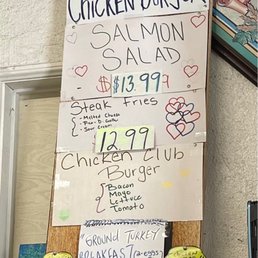 CHICKEN BURGER
SALMON
SALAD
$13.99
Steak fries
- Melted Cheese
- Pico-D-Gallo
- Sour Cream
12.99
Chicken Club
Burger
Bacon
Mayo
Lettuce
Tomato
GROUND TURKEY
BREAKFAST (2-eggs)